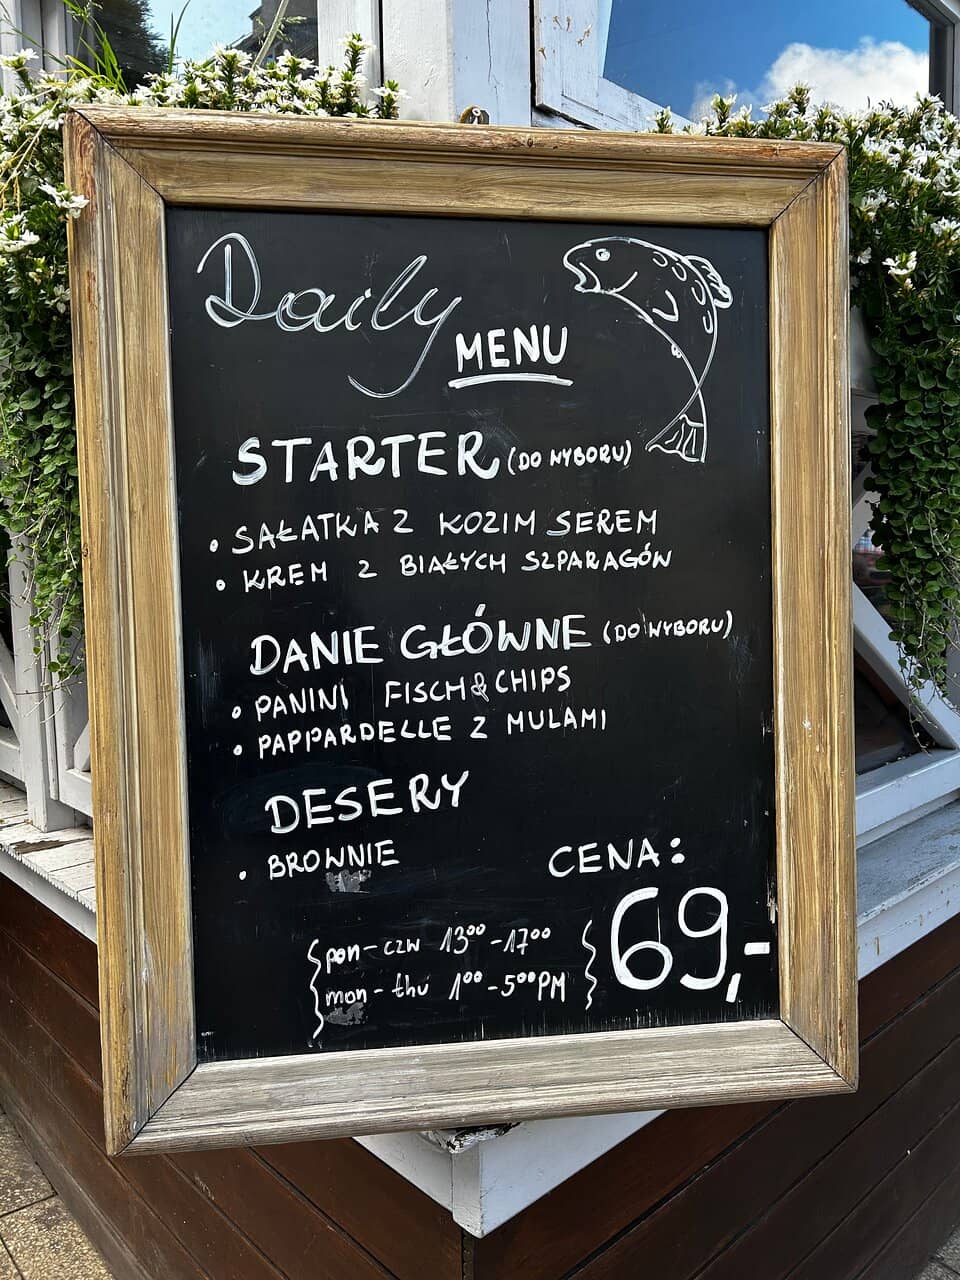 Daily
MENU
STARTER (DO WYBORU)
• SAŁATKA Z KOZIM SEREM
• KREM Z BIAŁYCH SZPARAGÓW
DANIE GŁÓWNE (DO WYBORU)
• PANINI FISCH & CHIPS
• PAPPARDELLE Z MULAMI
DESERY
• BROWNIE
CENA:
69,-
pon - czw 13⁰⁰ - 17⁰⁰
mon - thu 1⁰⁰ - 5⁰⁰ PM